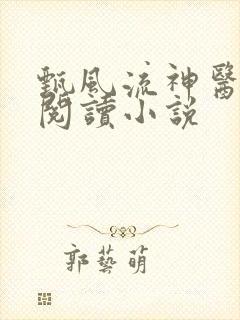 甄風流神醫
閱讀小説
郭藝萌